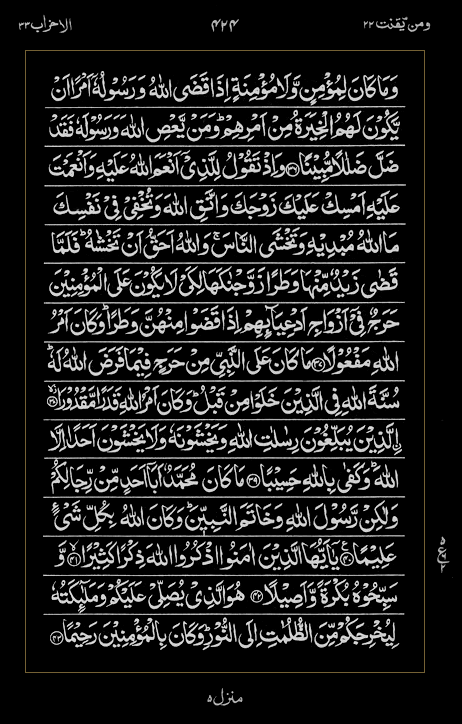 ومن يقنت ٢٢ ٤٢٤ الاحزاب ٣٣
وَمَا كَانَ لِمُؤْمِنٍ وَّلَا مُؤْمِنَةٍ اِذَا قَضَى اللّٰهُ وَرَسُوْلُهٗۤ اَمْرًا اَنْ
يَّكُوْنَ لَهُمُ الْخِيَرَةُ مِنْ اَمْرِهِمْ ؕ وَمَنْ يَّعْصِ اللّٰهَ وَرَسُوْلَهٗ فَقَدْ
ضَلَّ ضَلٰلًا مُّبِيْنًا ﴿۳۶﴾ وَاِذْ تَقُوْلُ لِلَّذِيْۤ اَنْعَمَ اللّٰهُ عَلَيْهِ وَاَنْعَمْتَ
عَلَيْهِ اَمْسِكْ عَلَيْكَ زَوْجَكَ وَاتَّقِ اللّٰهَ وَتُخْفِيْ فِيْ نَفْسِكَ
مَا اللّٰهُ مُبْدِيْهِ وَتَخْشَى النَّاسَ ۚ وَاللّٰهُ اَحَقُّ اَنْ تَخْشٰىهُ ؕ فَلَمَّا
قَضٰى زَيْدٌ مِّنْهَا وَطَرًا زَوَّجْنٰكَهَا لِكَيْ لَا يَكُوْنَ عَلَى الْمُؤْمِنِيْنَ
حَرَجٌ فِيْۤ اَزْوَاجِ اَدْعِيَآئِهِمْ اِذَا قَضَوْا مِنْهُنَّ وَطَرًا ؕ وَكَانَ اَمْرُ
اللّٰهِ مَفْعُوْلًا ﴿۳۷﴾ مَا كَانَ عَلَى النَّبِيِّ مِنْ حَرَجٍ فِيْمَا فَرَضَ اللّٰهُ لَهٗ ؕ
سُنَّةَ اللّٰهِ فِي الَّذِيْنَ خَلَوْا مِنْ قَبْلُ ؕ وَكَانَ اَمْرُ اللّٰهِ قَدَرًا مَّقْدُوْرَا ﴿۳۸﴾
ۨالَّذِيْنَ يُبَلِّغُوْنَ رِسٰلٰتِ اللّٰهِ وَيَخْشَوْنَهٗ وَلَا يَخْشَوْنَ اَحَدًا اِلَّا
اللّٰهَ ؕ وَكَفٰى بِاللّٰهِ حَسِيْبًا ﴿۳۹﴾ مَا كَانَ مُحَمَّدٌ اَبَاۤ اَحَدٍ مِّنْ رِّجَالِكُمْ
وَلٰكِنْ رَّسُوْلَ اللّٰهِ وَخَاتَمَ النَّبِيّٖنَ ؕ وَكَانَ اللّٰهُ بِكُلِّ شَيْءٍ
عَلِيْمًا ﴿۴۰﴾ يٰۤاَيُّهَا الَّذِيْنَ اٰمَنُوا اذْكُرُوا اللّٰهَ ذِكْرًا كَثِيْرًا ﴿۴۱﴾ وَّ
سَبِّحُوْهُ بُكْرَةً وَّاَصِيْلًا ﴿۴۲﴾ هُوَ الَّذِيْ يُصَلِّيْ عَلَيْكُمْ وَمَلٰٓئِكَتُهٗ
لِيُخْرِجَكُمْ مِّنَ الظُّلُمٰتِ اِلَى النُّوْرِ ؕ وَكَانَ بِالْمُؤْمِنِيْنَ رَحِيْمًا ﴿۴۳﴾
منزل ٥